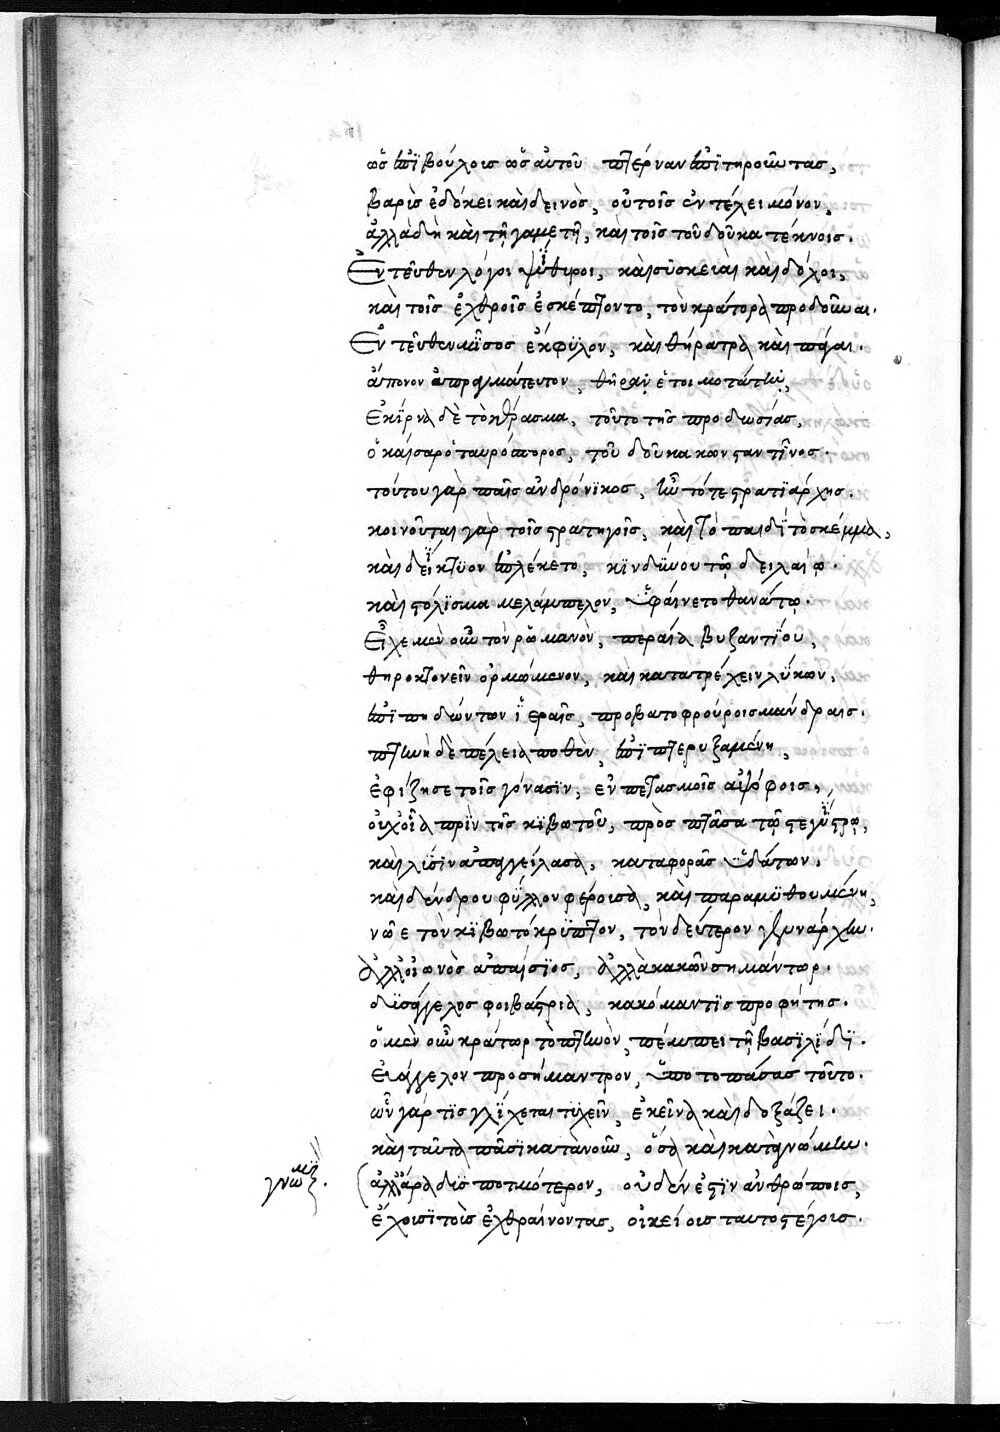 ὡς ἐπιβούλοις ὡς αὐτοῦ πτέρναν ἐπιτηροῦντας,
βαρὶς ἐδόκει καὶ δεινὸς, οὐ τοῖς ἐν τέλει μόνον,
ἀλλὰ δὴ καὶ τῇ γαμετῇ, καὶ τοῖς τοῦ δούκα τέκνοις.
Ἐντεῦθεν λόγοι ψίθυροι, καὶ σύσκειαι καὶ δόλοι,
καὶ τοῖς ἐχθροῖς ἐσκέπτοντο, τὸν κράτορα προδοῦναι.
Ἐντεῦθεν μῖσος ἔκφυλον, καὶ θήρατρα καὶ πάγαι.
ἄπονον ἀπραγμάτευτον, θήραν ἑτοιμοτάτην,
ἐκίρνα δὲ τὸ κθράσμα, τοῦτο τῆς προδωσίας,
ὁ καῖσαρ ὁ ταυρόπορος, τοῦ δούκα κωνσταντῖνος.
τούτου γὰρ παῖς ἀνδρόνικος, ἦν τότε στρατιάρχης.
κοινοῦται γὰρ τοῖς στρατηγοῖς, καὶ τῷ παιδὶ τὸ σκέμμα,
καὶ δείκτυον ἐπλέκετο, κινδύνου τῷ δειλαίῳ.
καὶ στόλισμα μελάμπεπλον, ὑφαίνετο θανάτῳ.
Εἶχε μὲν οὖν τὸν ῥωμανὸν, περαία βυζαντίου,
θηροκτονεῖν ὁρμώμενον, καὶ κατατρέχειν λύκων,
ἐπιπηδώντων ἱεραῖς, προβατοφρούροις μάνδραις.
πτηνὴ δὲ πέλεια ποθὲν, ἐπιπτερυξαμένη,
ἐφίζησε τοῖς γόνασιν, ἐν πετασμοῖς ἀψόφοις,
οὐχ οἵα πρὶν τῆς κιβωτοῦ, πρὸς πτᾶσα τῷ στεγύστρῳ,
καὶ λῦσιν ἀπαγγείλασα, καταφορᾶς ὑδάτων,
καὶ δένδρου φύλλον φέρουσα, καὶ παραμυθουμένη,
νῶε τὸν κιβωτόκρυπτον, τὸν δεύτερον γεννάρχην.
ἀλλ' οἰωνὸς ἀπαίσιος, ἀλλὰ κακῶν σημάντωρ.
δυσάγγελος φοιβάστρια, κακόμαντις προφήτης.
ὁ μὲν οὖν κράτωρ τὸ πτηνὸν, πέμπει τῇ βασιλίδι.
εὐάγγελον προσήμαντρον, ὑποτοπάσας τοῦτο.
ὧν γάρ τις γλίχεται τυχεῖν, ἐκεῖνα καὶ δοξάζει.
καὶ ταῦτα πᾶσι κατὰ νοῦν, ὅσα καὶ κατὰ γνώμην.
γνώμη. ἀλλ' ἄρα δυσποτμότερον, οὐδέν ἐστιν ἀνθρώποις,
ἔχουσι τοὺς ἐχθραίνοντας, οἰκείοις ταυτοστέγοις.